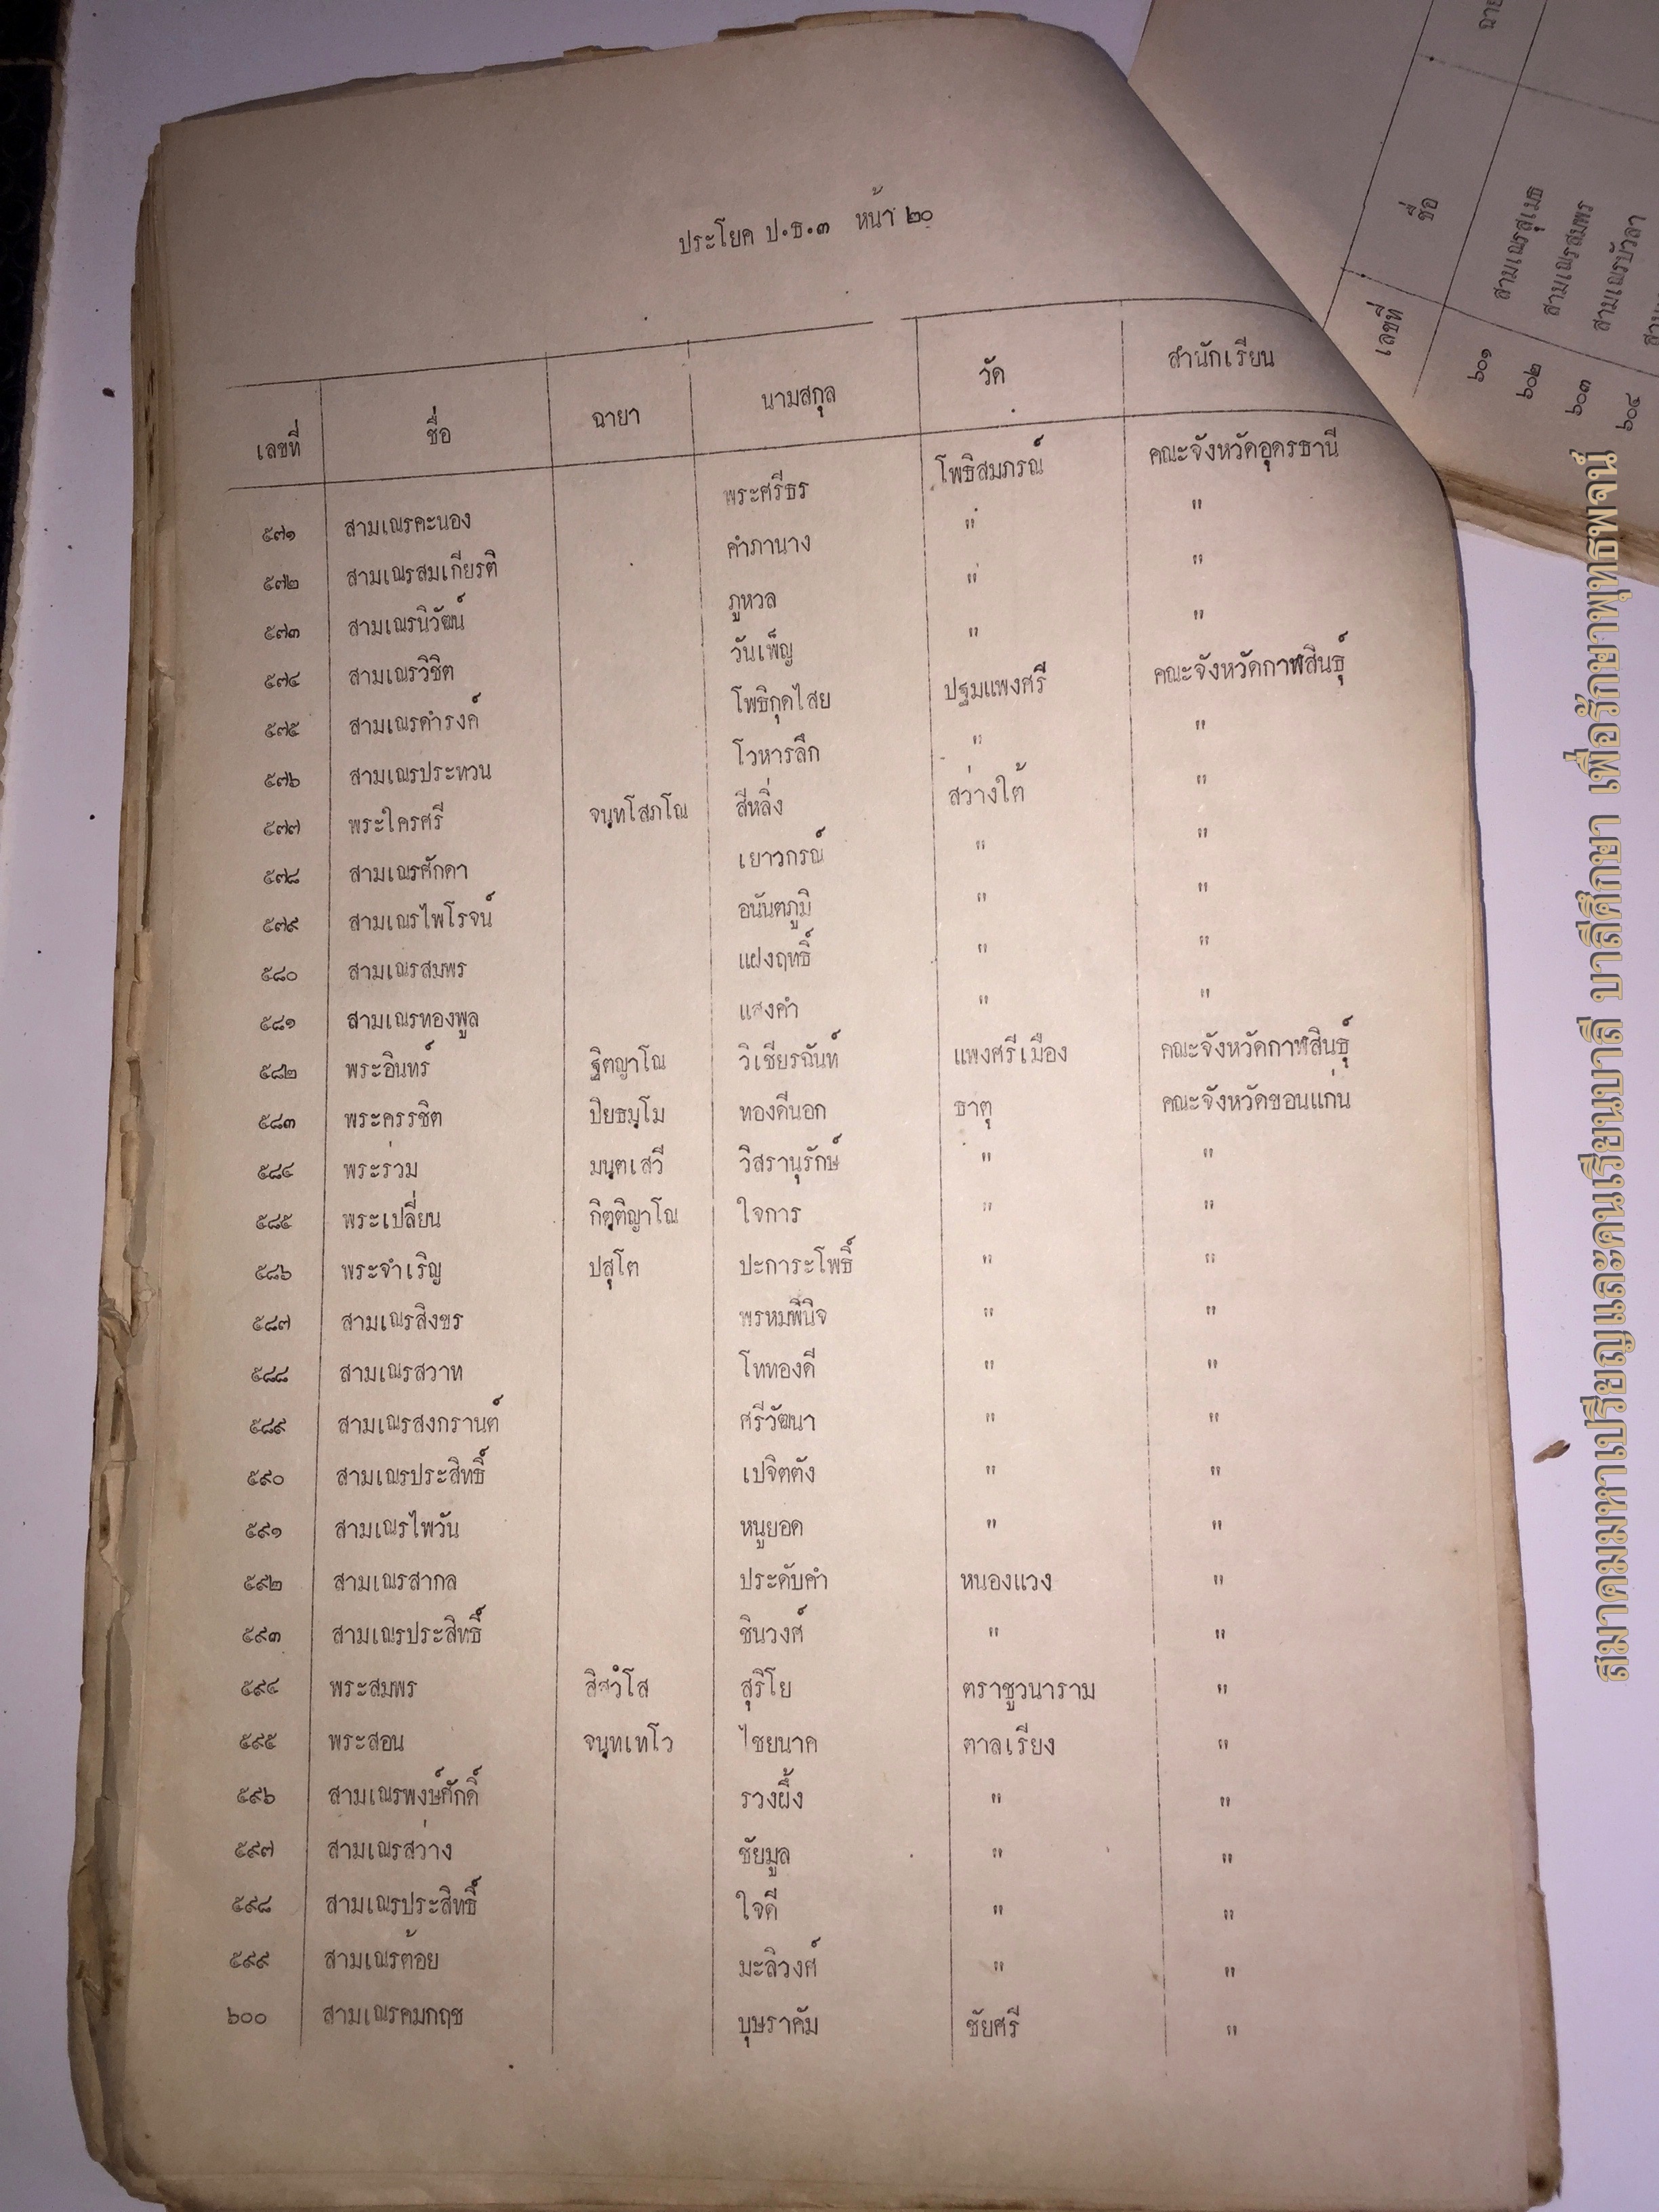 ประโยค ป.ธ.๓ หน้า ๒๐
เลขที่ ชื่อ ฉายา นามสกุล วัด สำนักเรียน
๕๗๑ สามเณรคะนอง พระศรีธร โพธิสมภรณ์ คณะจังหวัดอุดรธานี
๕๗๒ สามเณรสมเกียรติ คำภานาง " "
๕๗๓ สามเณรนิวัฒน์ ภูหวล " "
๕๗๔ สามเณรวิชิต วันเพ็ญ " "
๕๗๕ สามเณรดำรงค์ โพธิกุดไสย ปฐมแพงศรี คณะจังหวัดกาฬสินธุ์
๕๗๖ สามเณรประทวน โวหารลึก " "
๕๗๗ พระใครศรี จนฺทโสภโณ สีหลิ่ง สว่างใต้ "
๕๗๘ สามเณรศักดา เยาวกรณ์ " "
๕๗๙ สามเณรไพโรจน์ อนันตภูมิ " "
๕๘๐ สามเณรสมพร แฝงฤทธิ์ " "
๕๘๑ สามเณรทองพูล แสงคำ " "
๕๘๒ พระอินทร์ ฐิตญาโณ วิเชียรฉันท์ แพงศรีเมือง คณะจังหวัดกาฬสินธุ์
๕๘๓ พระครรชิต ปิยธมฺโม ทองดีนอก ธาตุ คณะจังหวัดขอนแก่น
๕๘๔ พระร่วม มนฺตเสวี วิสรานุรักษ์ " "
๕๘๕ พระเปลี่ยน กิตฺติญาโณ ใจการ " "
๕๘๖ พระจำเริญ ปสุโต ปะการะโพธิ์ " "
๕๘๗ สามเณรสิงขร พรหมพินิจ " "
๕๘๘ สามเณรสวาท โททองดี " "
๕๘๙ สามเณรสงกรานต์ ศรีวัฒนา " "
๕๙๐ สามเณรประสิทธิ์ เปจิตตัง " "
๕๙๑ สามเณรไพวัน หนูยอด " "
๕๙๒ สามเณรสากล ประดับคำ หนองแวง "
๕๙๓ สามเณรประสิทธิ์ ชินวงศ์ " "
๕๙๔ พระสมพร สิสวํโส สุริโย ตราชูวนาราม "
๕๙๕ พระสอน จนฺทเทโว ไชยนาค ตาลเรียง "
๕๙๖ สามเณรพงษ์ศักดิ์ รวงผึ้ง " "
๕๙๗ สามเณรสว่าง ชัยมูล " "
๕๙๘ สามเณรประสิทธิ์ ใจดี " "
๕๙๙ สามเณรต้อย มะลิวงศ์ " "
๖๐๐ สามเณรคมกฤช บุษราคัม ชัยศรี "
เลขที่ ชื่อ
๖๐๑ สามเณรสุเมธ
๖๐๒ สามเณรสมพร
๖๐๓ สามเณรบัวลา
๖๐๔
สมาคมมหาเปรียญและคนเรียนบาลี บาลีศึกษา เพื่อรักษาพุทธพจน์